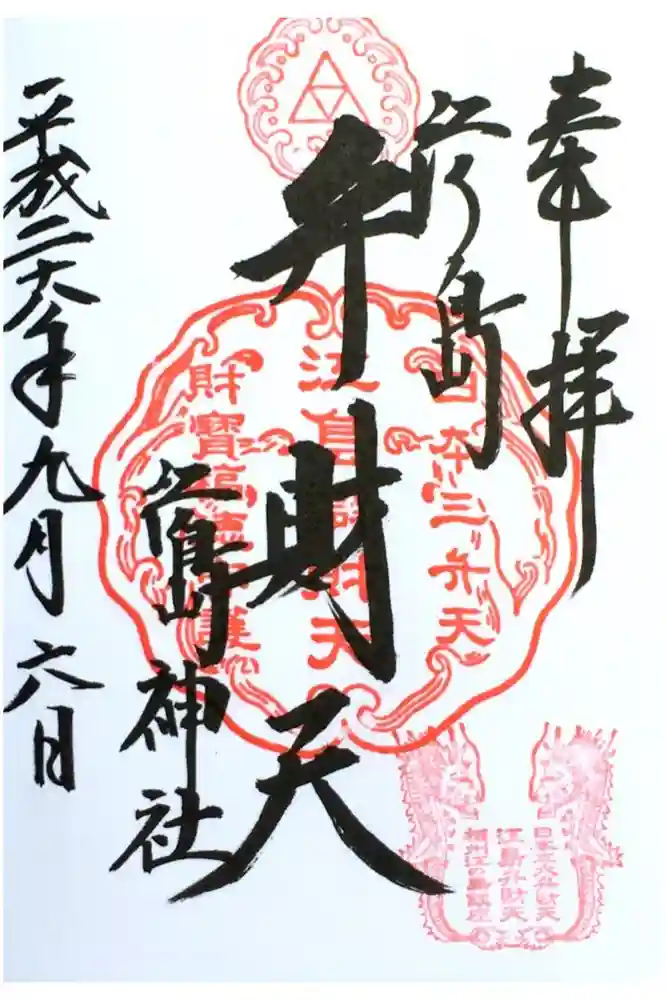 奉拝
江乃島
弁財天
江島神社
平成二十八年九月六日
日本三弁天
江島辨財天
財寶福徳守護
日本三大弁財天
江島弁財天
相州江の島鎮座